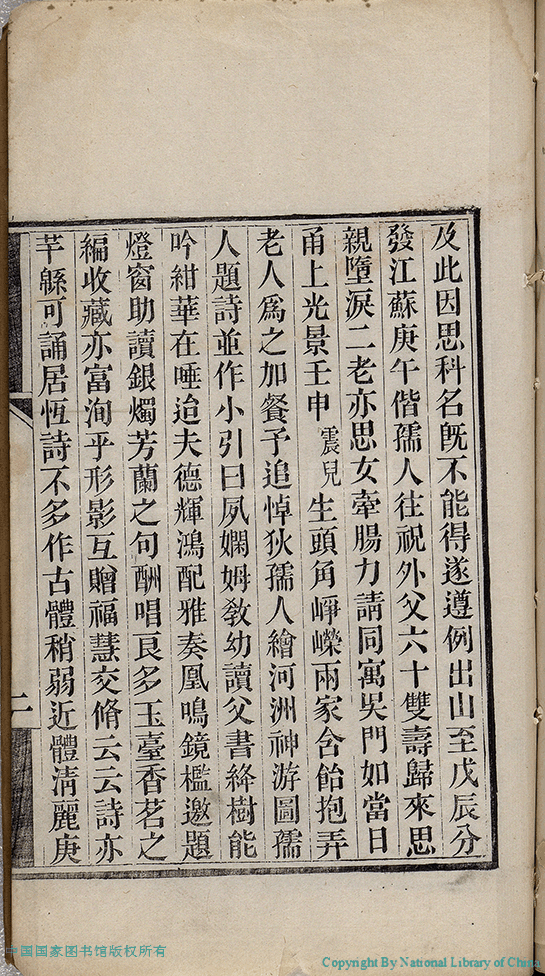 及此因思科名旣不能得遂遵例出山至戊辰分
發江蘇庚午偕孺人往祝外父六十雙壽歸來思
親墮淚二老亦思女牽腸力請同寓吳門如當日
甬上光景壬申震兒生頭角崢嶸兩家含飴抱弄
老人爲之加餐予追悼狄孺人繪河洲神游圖孺
人題詩並作小引曰夙嫻姆敎幼讀父書絳樹能
吟紺華在唾迨夫德輝鴻配雅奏凰鳴鏡檻邀題
燈窗助讀銀燭芳蘭之句酬唱良多玉臺香茗之
編收藏亦富洵乎形影互贈福慧交脩云云詩亦
芊緜可誦居恆詩不多作古體稍弱近體淸麗庚
二
中国国家图书馆版权所有
Copyright By National Library of China